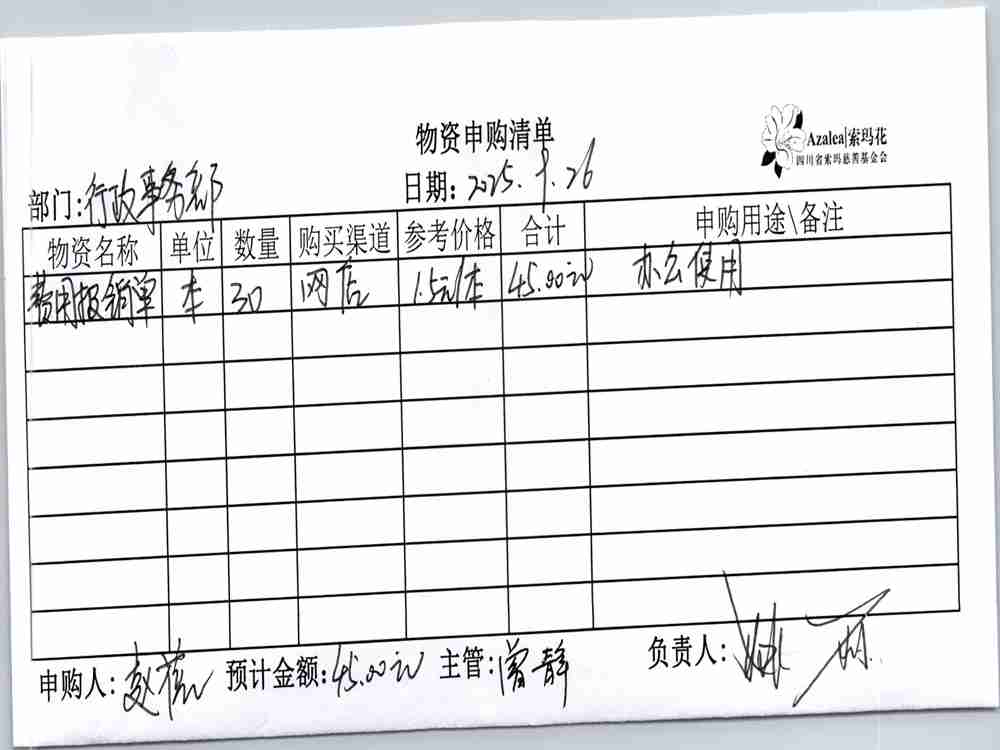 物资申购清单
Azalea|索玛花
四川省索玛慈善基金会
部门:行政事务部 日期:2025.9.26
物资名称 单位 数量 购买渠道 参考价格 合计 申购用途\备注
费用报销单 本 30 网店 1.5元/本 45.00元 办公使用
申购人: 预计金额:45.00元 主管:曾静 负责人: